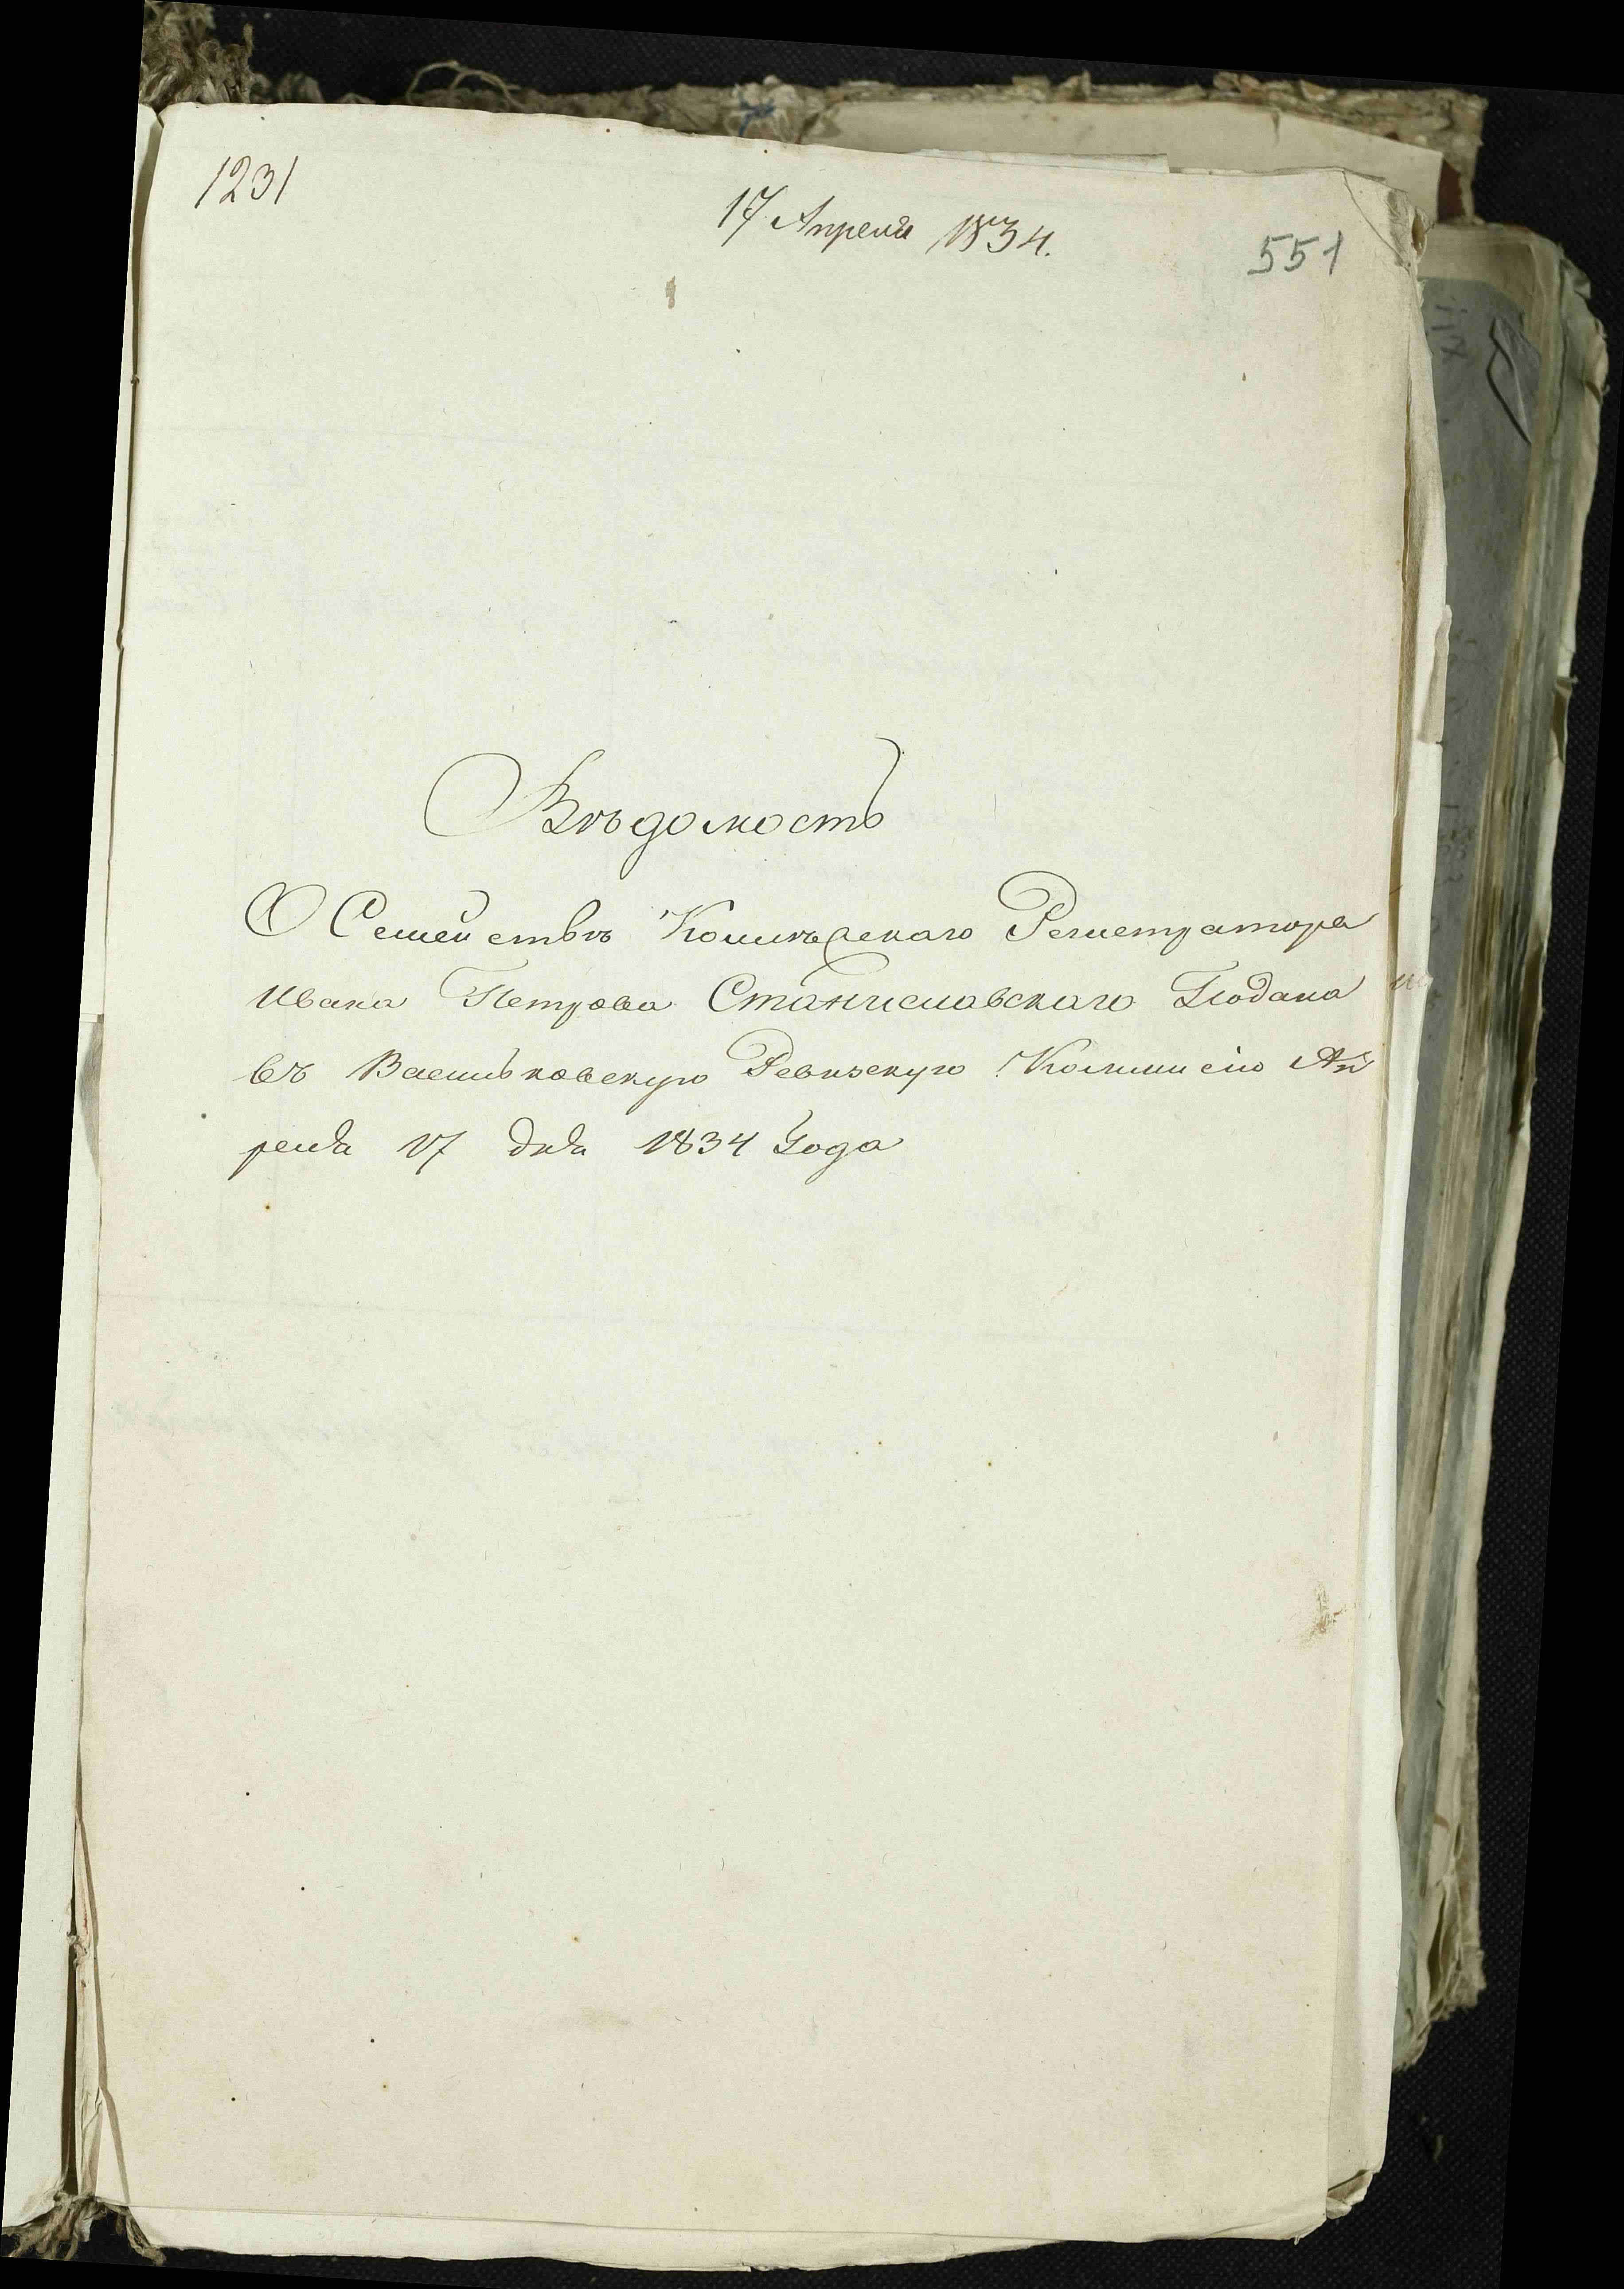 1231
17 Апреля 1834.
551
Вѣдомость
О Семействѣ Колижскаго Регистратора
Ивана Петрова Станиславскаго Подана
въ Васильковскую Ревизскую Коммисію Ап
реля 17 дня 1834 Года